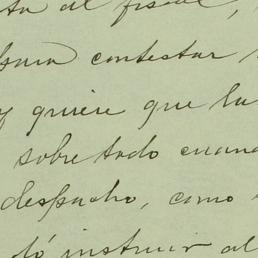 ta al fiscal,
para contestar
y quiere que la
sobre todo cuand
despacho, como
dó instruir al